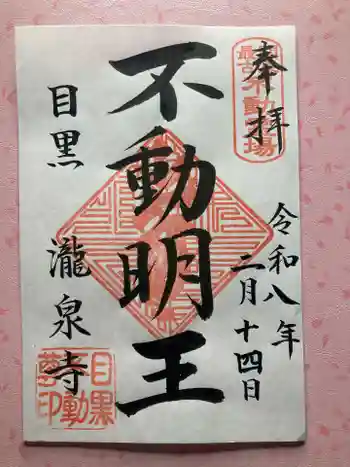 奉拝
最古不動霊場
令和八年
二月十四日
不動明王
目黒 瀧泉寺
目黒不動尊印